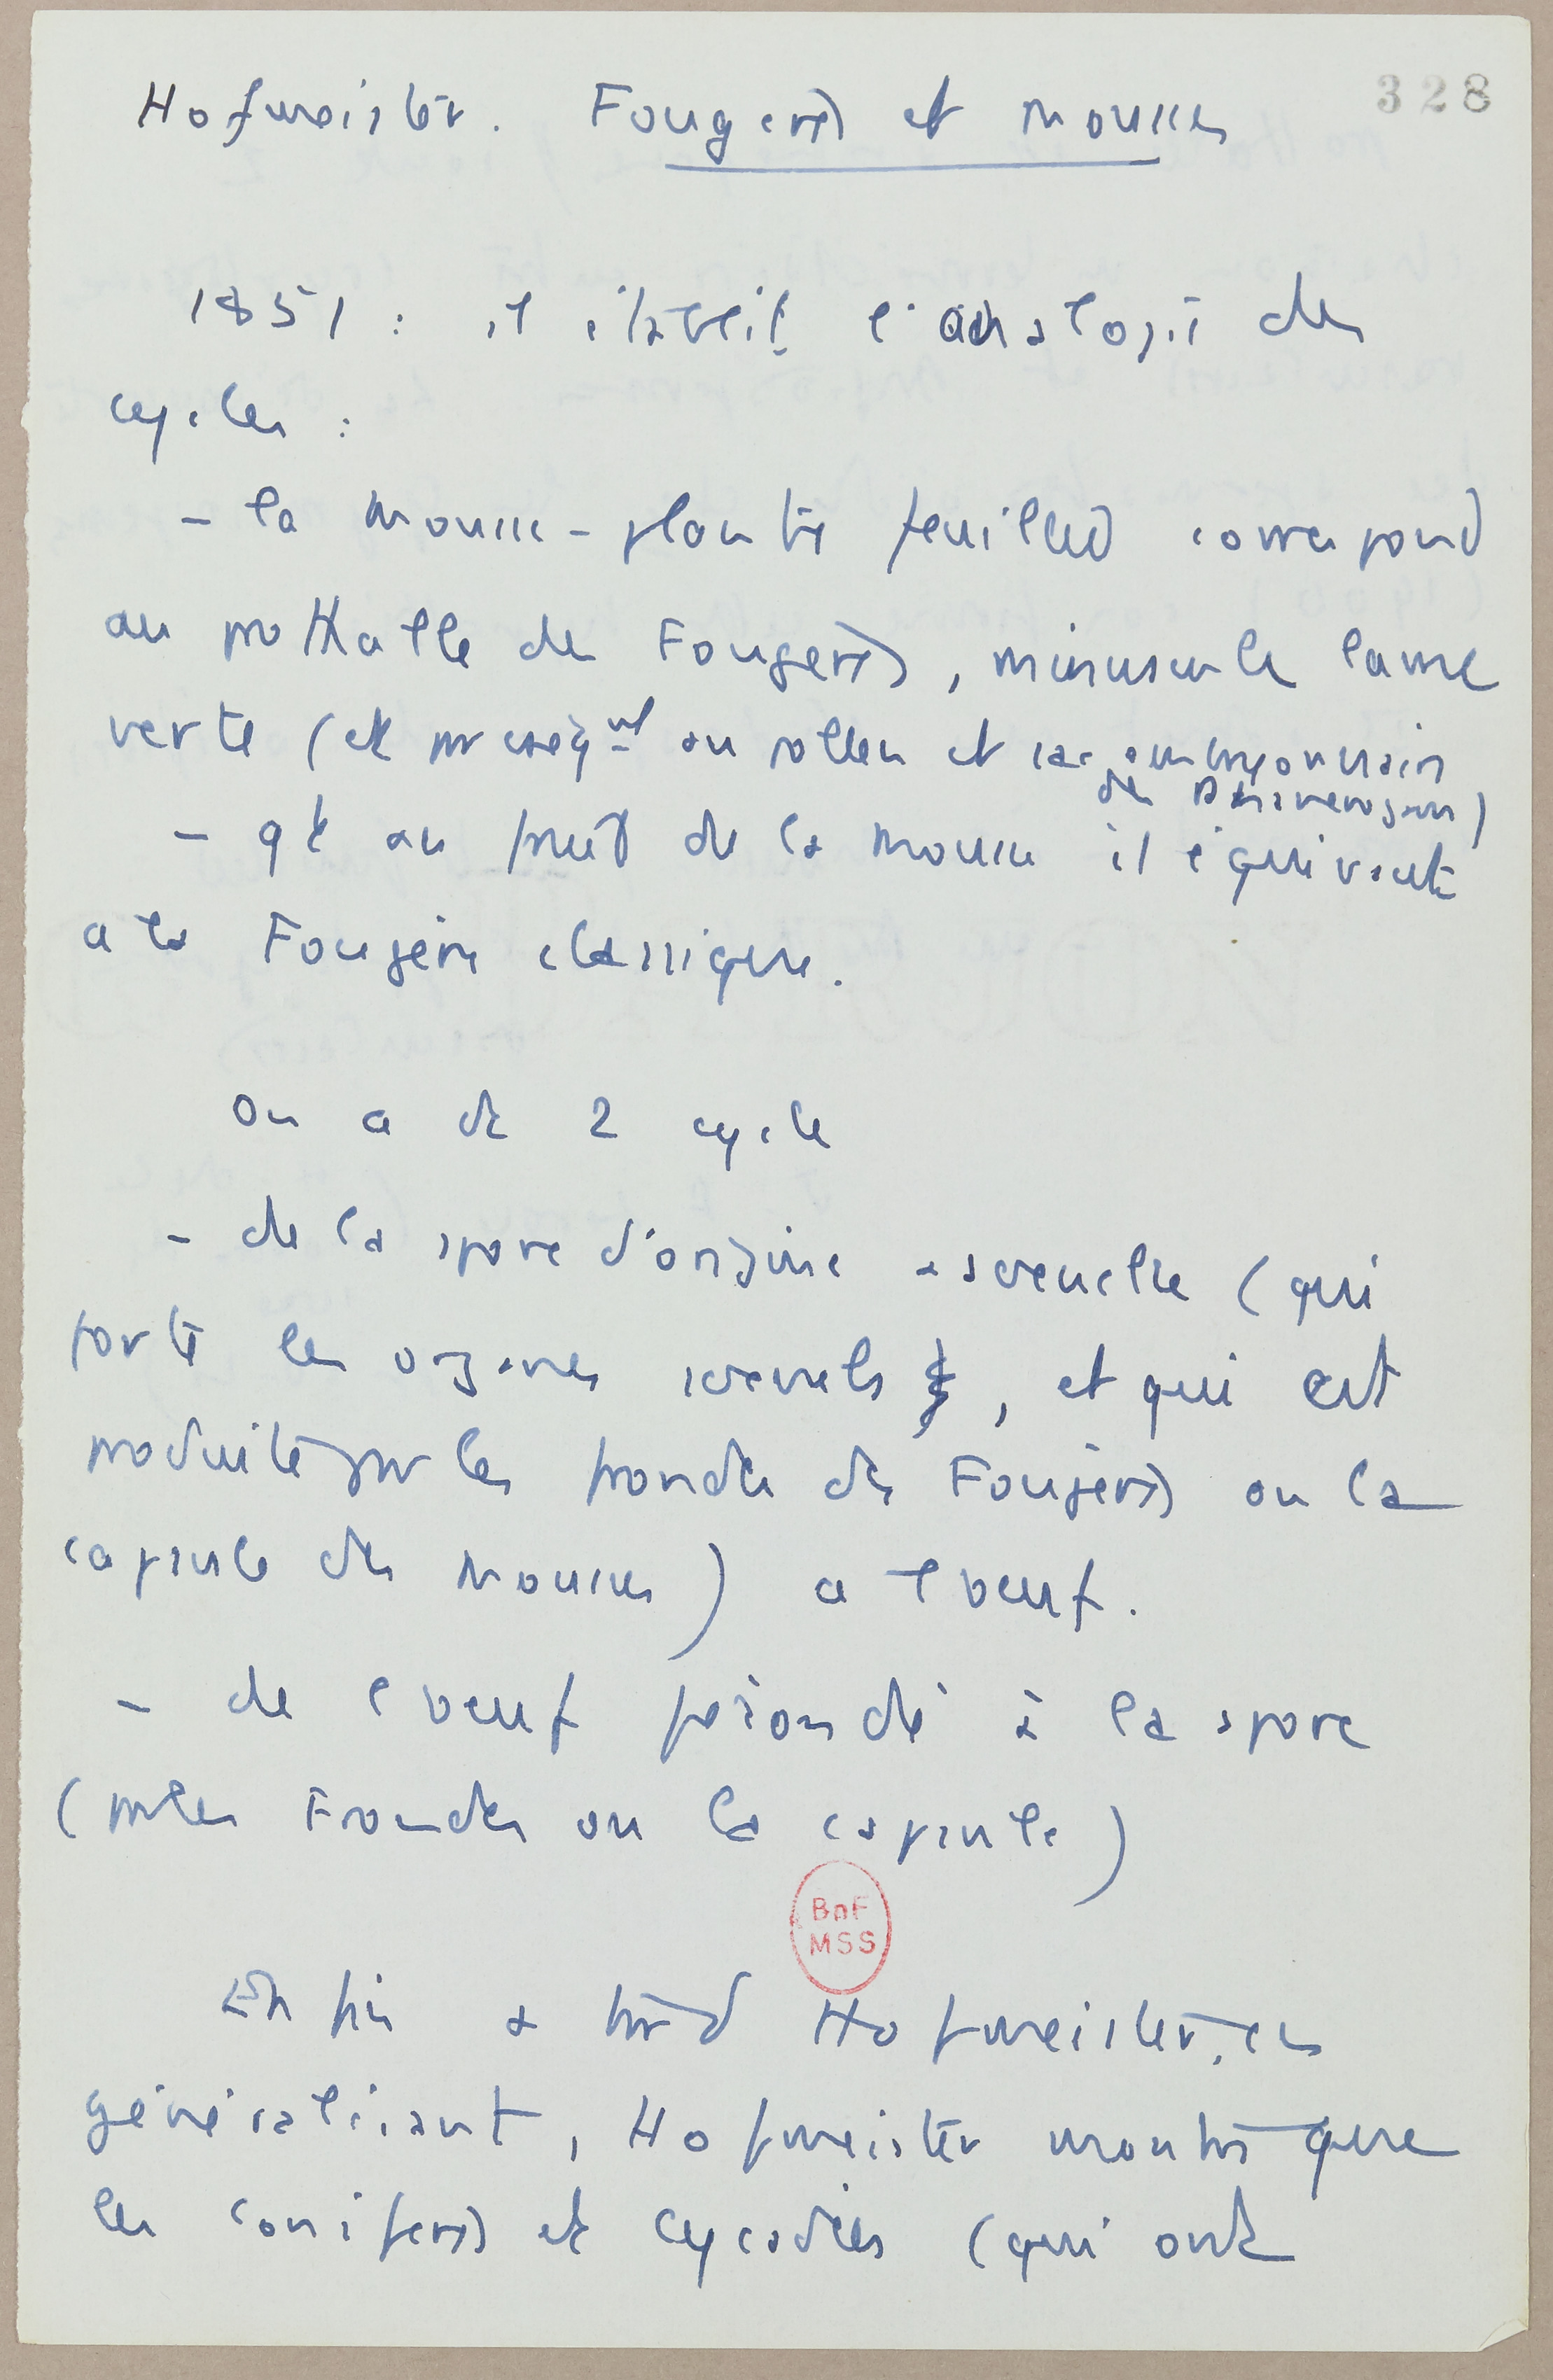 328
Hofmeister. Fougères et Mousses
1851 : il établit l'analogie des
cycles :
- la Mousse-plante feuillée correspond
au prothalle des Fougères, minuscule lame
verte (et par conséqnt au pollen et sac embryonnaire
des Phanérogam)
- qt au fruit de la Mousse il équivaut
a la Fougère classique.
On a dc 2 cycle
- de la spore d'origine asexuelle (qui
porte les organes sexuels, et qui est
produite sur les frondes des Fougères ou la
capsule des Mousses) a l'oeuf.
- de l'oeuf fécondé à la spore
(sur les Frondes ou la capsule)
BnF
MSS
Enfin + tard Hofmeister, en
généralisant, Hofmeister montre que
les conifères et Cycadées (qui ont